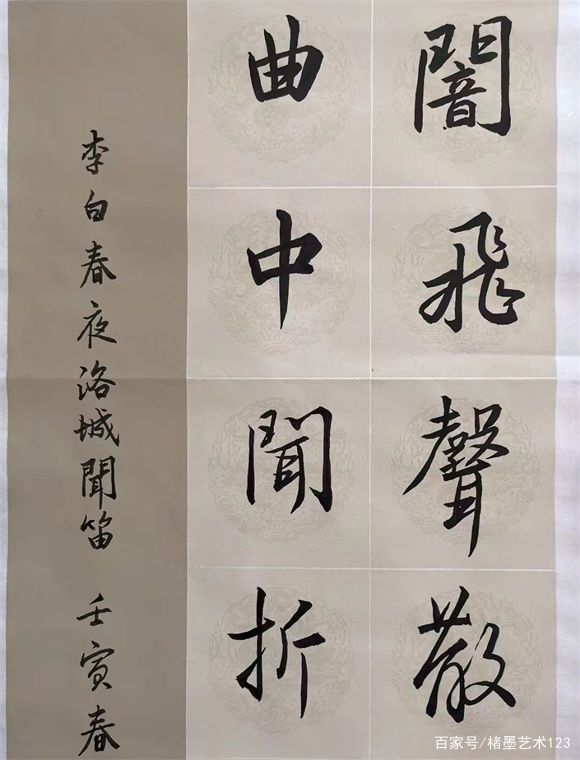 闇飛聲散
曲中聞折
李白春夜洛城聞笛 壬寅春
百家号/楮墨艺术123